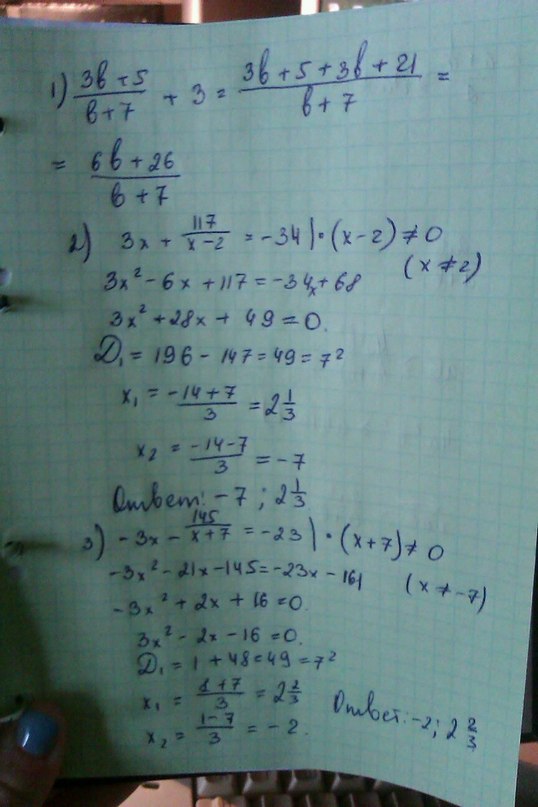 1) (3b+5)/(b+7) + 3 = (3b+5+3b+21)/(b+7) =
= (6b+26)/(b+7)
2) 3x + 117/(x-2) = -34 | · (x-2) ≠ 0
(x ≠ 2)
3x² - 6x + 117 = -34x + 68
3x² + 28x + 49 = 0.
D₁ = 196 - 147 = 49 = 7²
x₁ = (-14+7)/3 = 2 1/3
x₂ = (-14-7)/3 = -7
Ответ: -7 ; 2 1/3
3) -3x - 145/(x+7) = -23 | · (x+7) ≠ 0
-3x² - 21x - 145 = -23x - 161 (x ≠ -7)
-3x² + 2x + 16 = 0.
3x² - 2x - 16 = 0.
D₁ = 1 + 48 = 49 = 7²
x₁ = (1+7)/3 = 2 2/3
Ответ: -2; 2 2/3
x₂ = (1-7)/3 = -2.